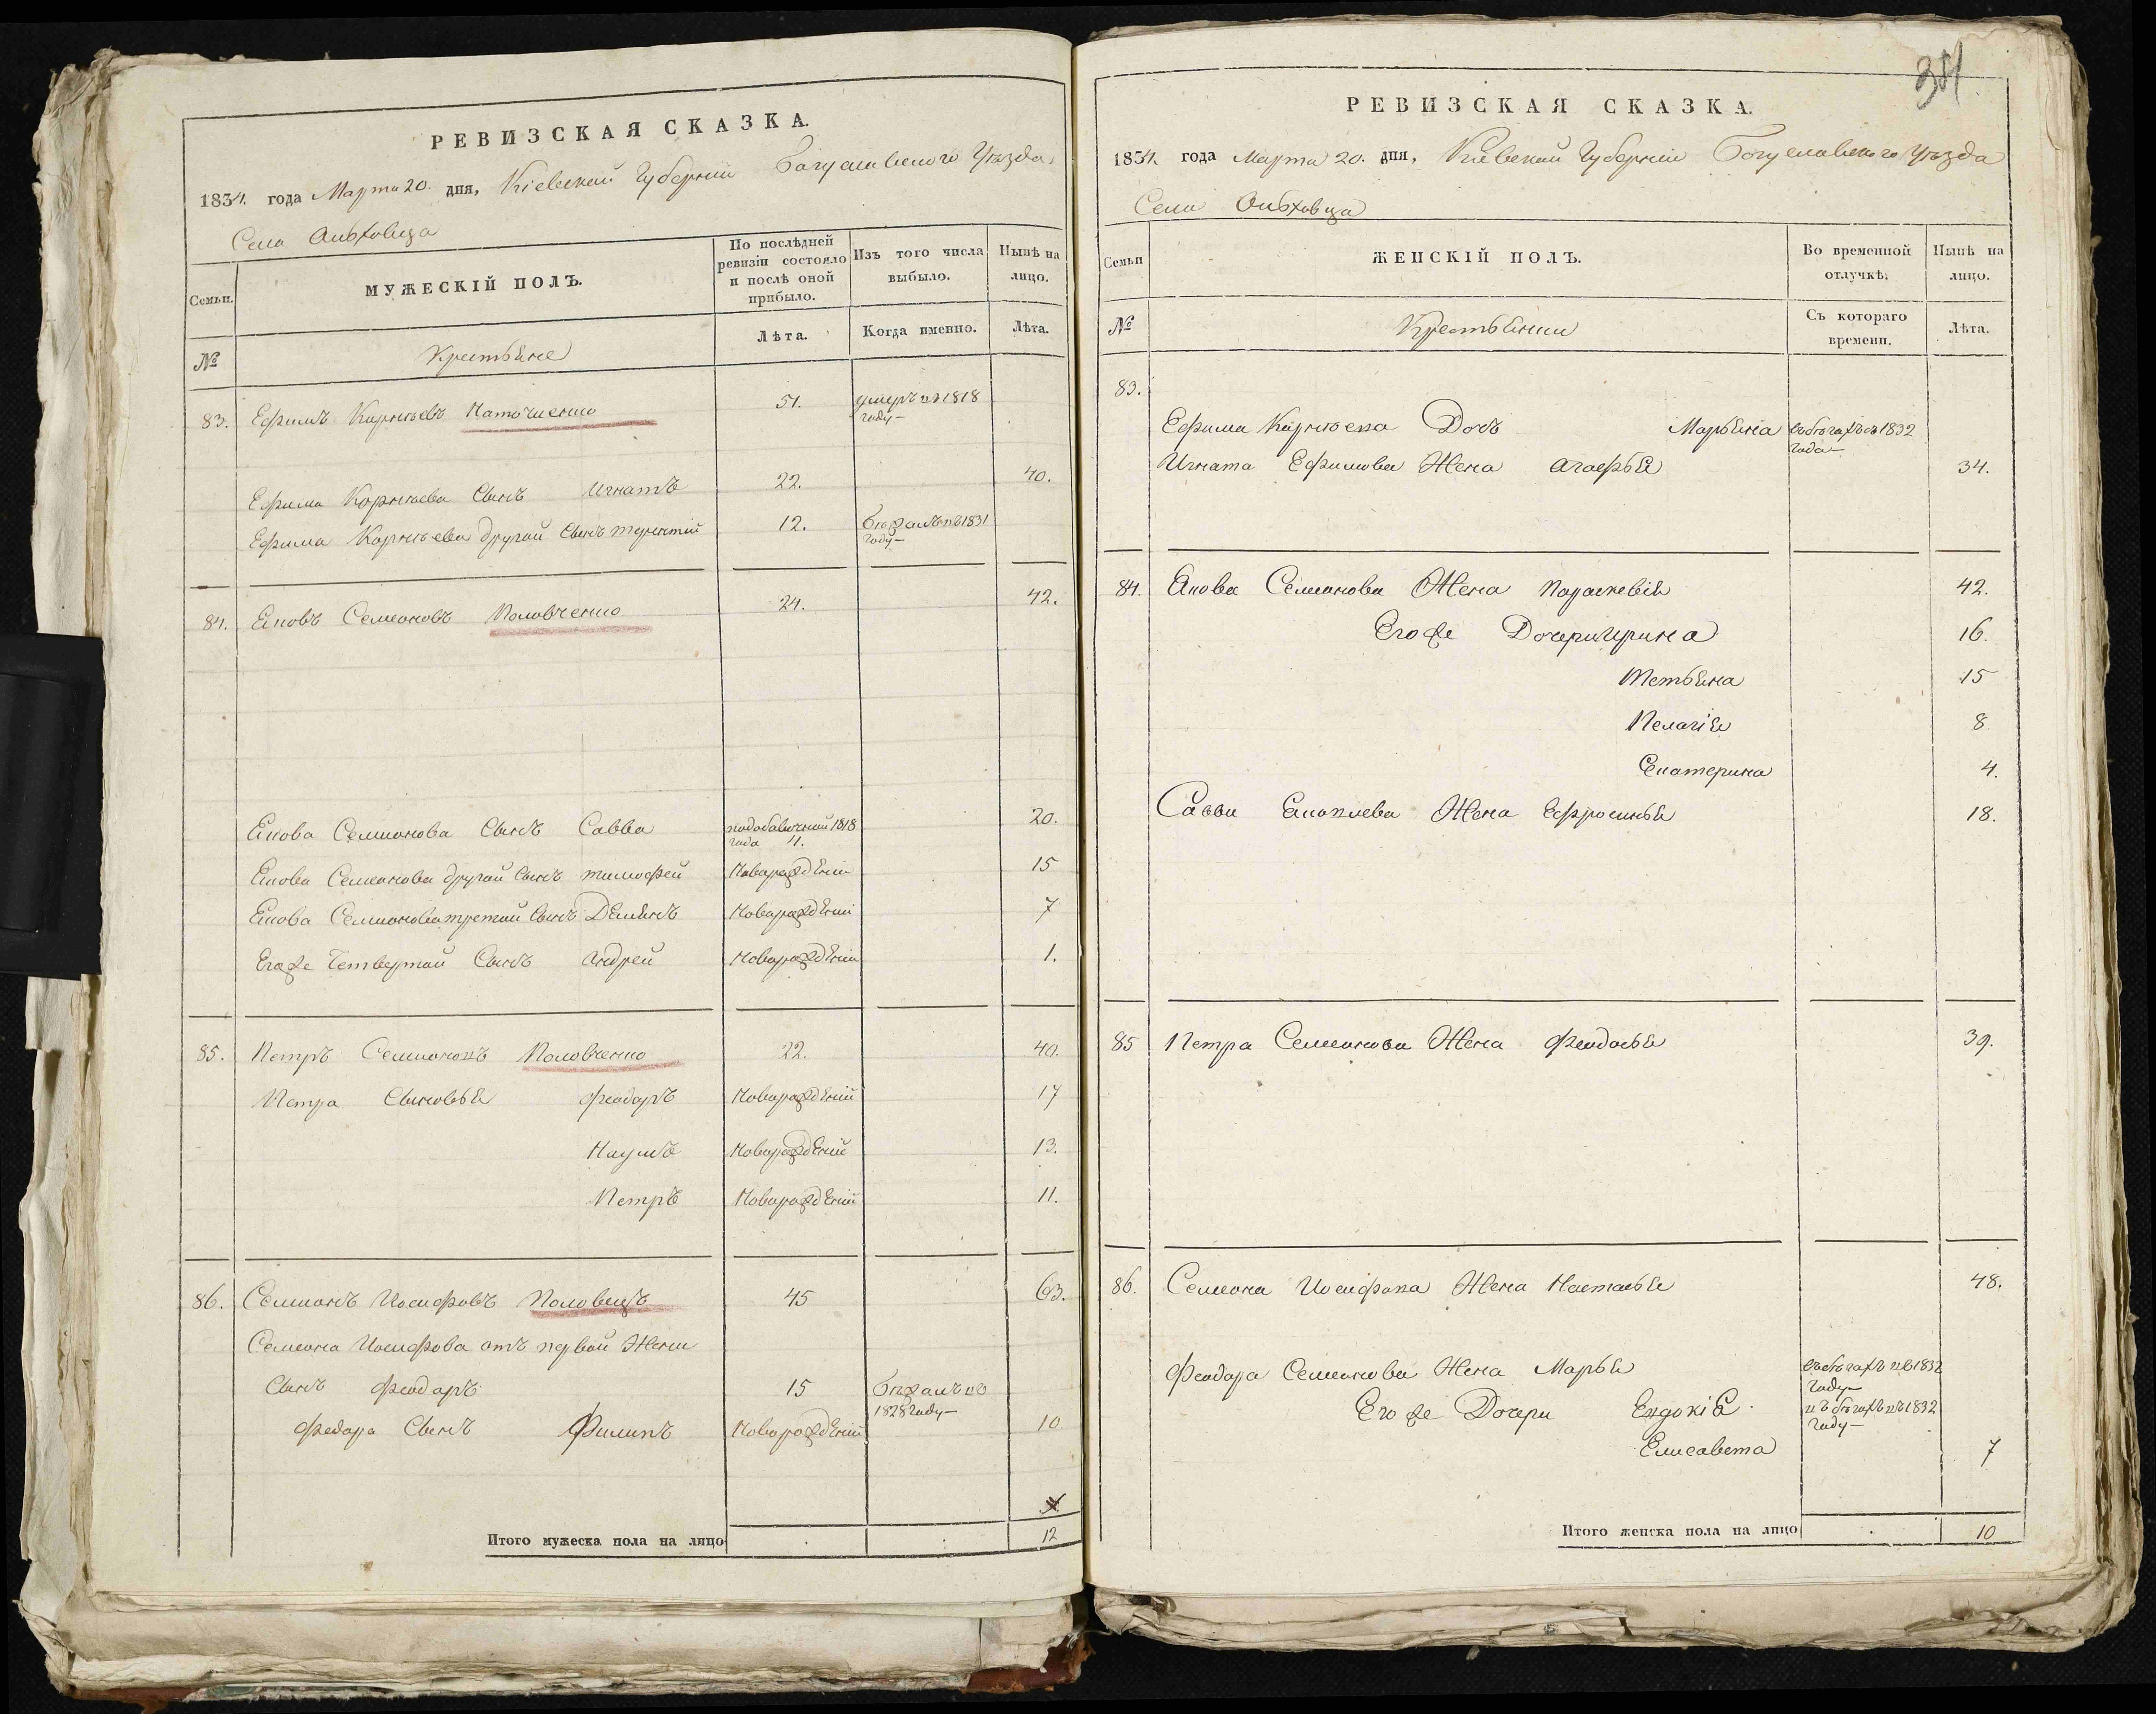 РЕВИЗСКАЯ СКАЗКА.
1834. года Марта 20. дня, Кіевской Губерніи Богуславского Уѣзда
Села Ольховца
Семьи.
МУЖЕСКІЙ ПОЛЪ.
По послѣдней ревизіи состояло и послѣ оной прибыло.
Изъ того числа выбыло.
Нынѣ на лицо.
№
Крестьяне
Лѣта.
Когда именно.
Лѣта.
83. Ефимъ Карнѣевъ 51. умеръ въ 1818 году
Ефима Корнѣева Сынъ Игнатъ 22. 40.
Ефима Корнѣева другой Сынъ терентій 12. бѣжалъ въ 1831 году
84. Яковъ Семионовъ Половченко 24. 42.
Якова Семионова Сынъ Савва 1818 года 4. 20.
Якова Семионова другой Сынъ тимофей Новорожденій 15
Якова Семионова третой Сынъ Демянъ Новорожденій 7
Егоже Четвертой Сынъ Андрей Новорожденій 1.
85. Петръ Семионовъ Половченко 22. 40.
Петра Сыновья Феодаръ Новорожденій 17
Наумъ Новорожденій 13.
Петръ Новорожденій 11.
86. Семионъ Иосифовъ Половецъ 45 63.
Семиона Иосифова отъ первой Жены
Сынъ Феодаръ 15 бѣжалъ въ 1828 году
Федара Сынъ Филипъ Новорожденій 10
Итого мужеска пола на лицо 12
381
РЕВИЗСКАЯ СКАЗКА.
1834. года Марта 20. дня, Кіевской Губерніи Богуславского Уѣзда
Села Ольховца
Семьи
ЖЕНСКІЙ ПОЛЪ.
Во временной отлучкѣ.
Нынѣ на лицо.
№
Крестьянки
Съ котораго времени.
Лѣта.
83.
Ефима Карнѣева Дочь Марьяна въ бѣгахъ съ 1832 года
Игната Ефимова Жена Агафья 34.
84. Якова Семионова Жена Параскевія 42.
Егоже Дочери Ирина 16.
Тетьяна 15
Пелагія 8
Екатерина 4.
Саввы Яковлева Жена Ефросинья 18.
85 Петра Семионова Жена Феодосья 39.
86. Семиона Иосифова Жена Настасья 48.
Феодара Семионова Жена Марья въ бѣгахъ въ 1832 году
Егоже Дочери Евдокія въ бѣгахъ въ 1832 году
Елисавета 7
Итого женска пола на лицо 10